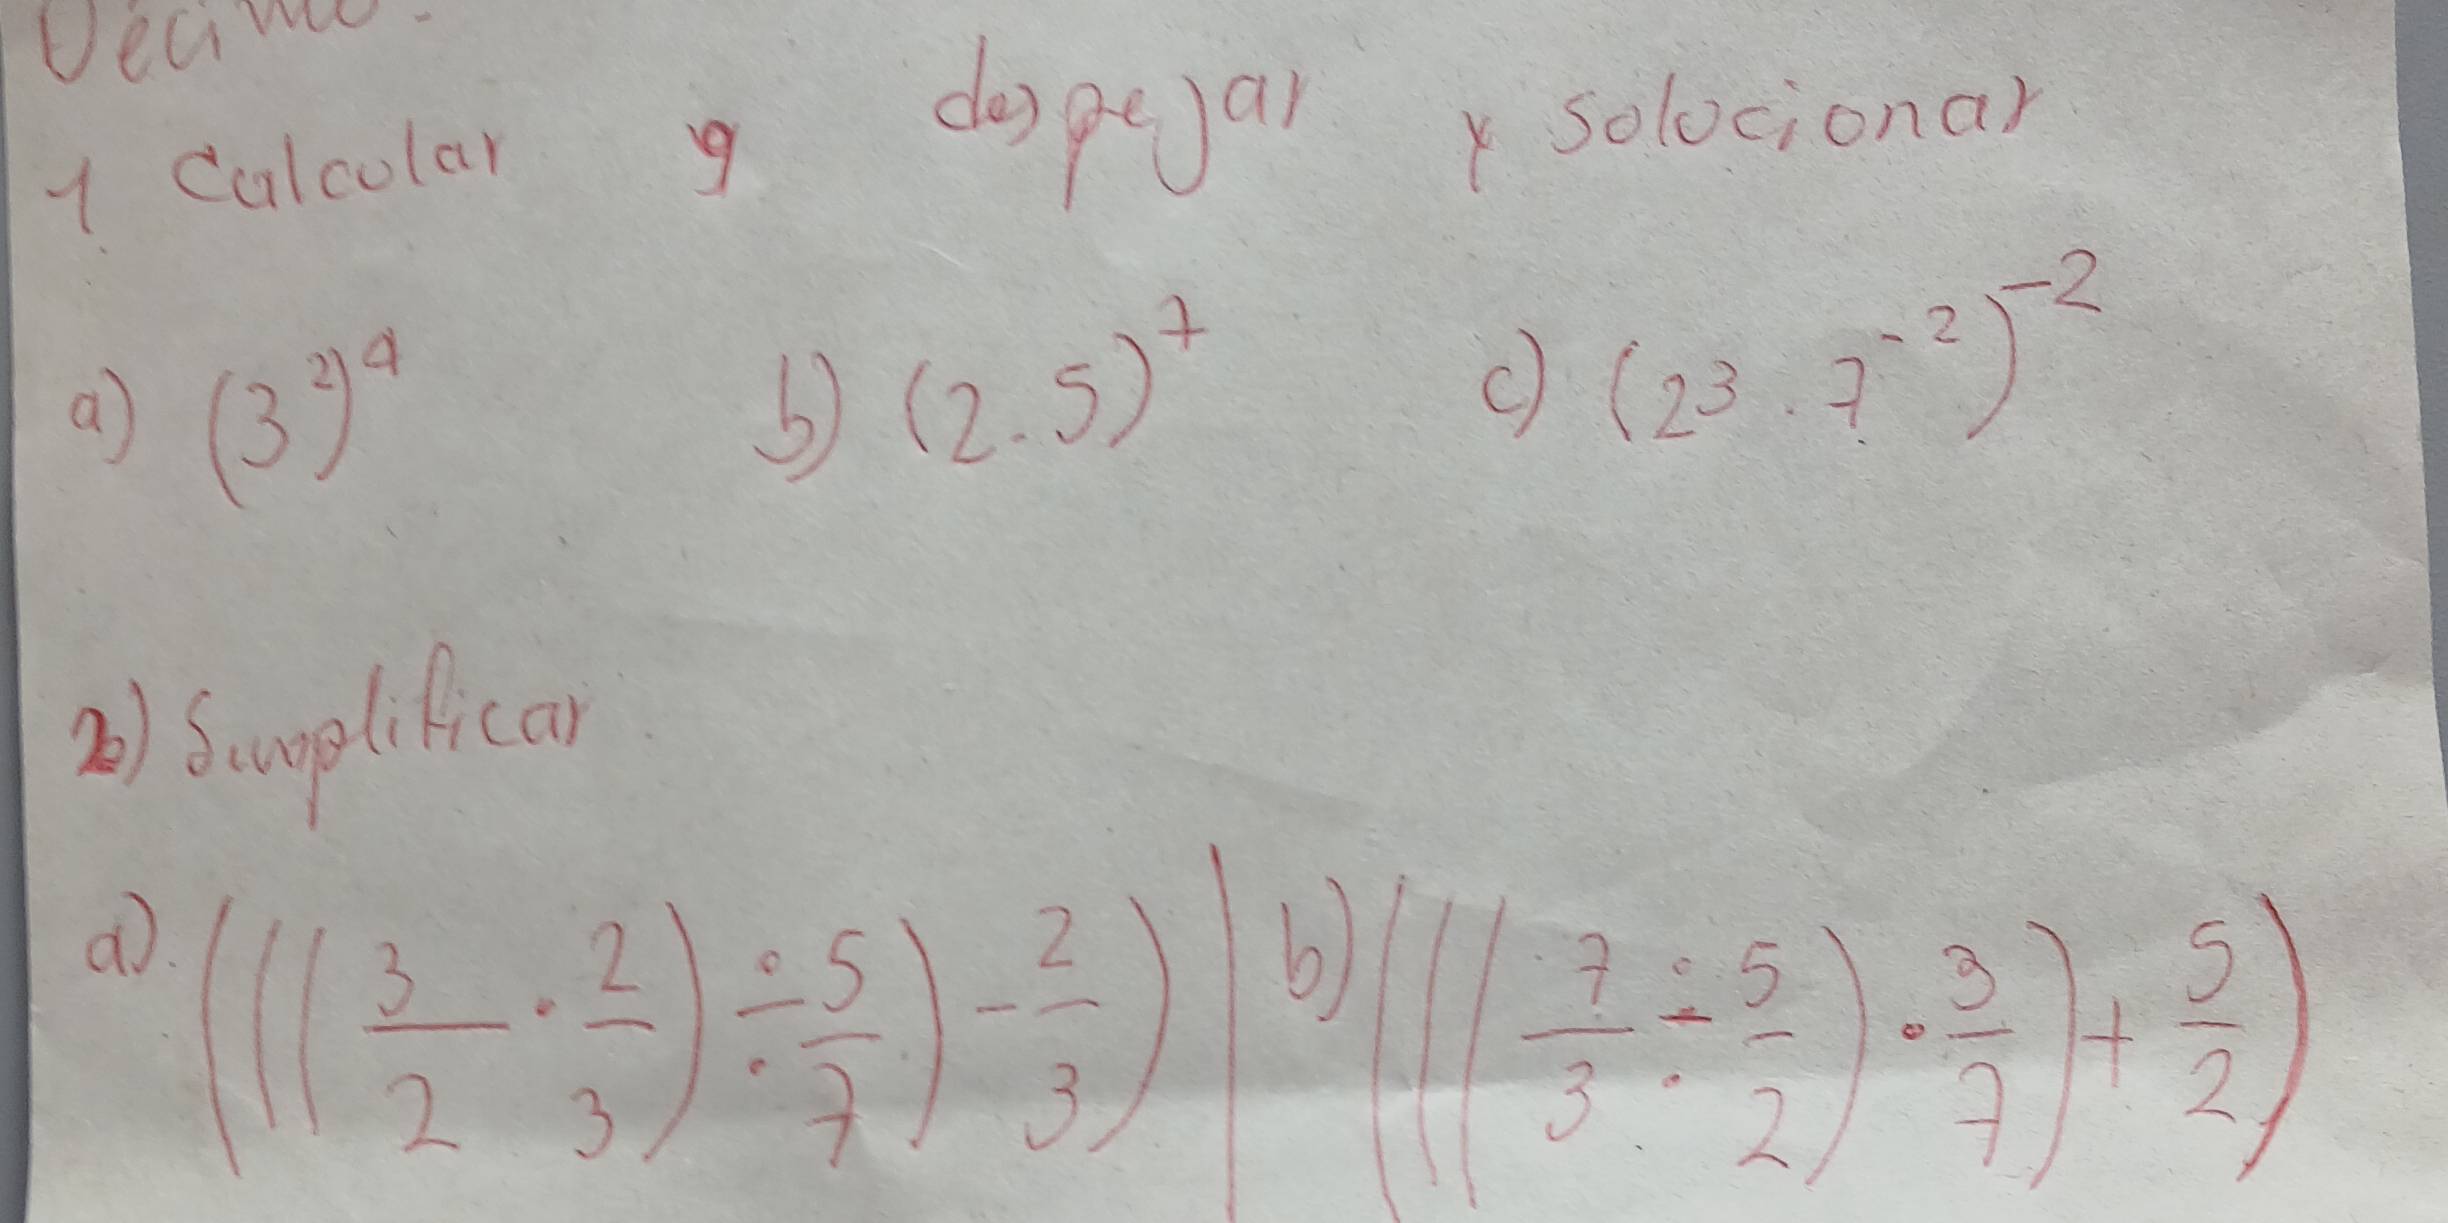 Décimo.
1. Calcular y despejar y solucionar
a) (3²)⁴ b) (2.5)⁷ c) (2³.7⁻²)⁻²
2) Simplificar
a). (((3/2 · 2/3) ÷ 5/7) - 2/3) | b) (((7/3 ÷ 5/2) · 3/7) + 5/2)